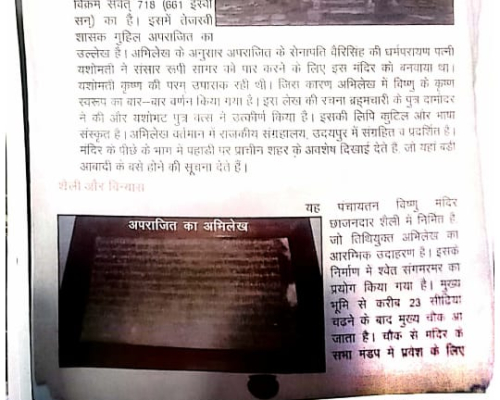 विक्रम संवत् 718 (661 इस्वी
सन्) का है। इसमें तेजस्वी
शासक गुहिल अपराजित का
उल्लेख है। अभिलेख के अनुसार अपराजित के सेनापति वैरिसिंह की धर्मपरायण पत्नी
यशोमती ने संसार रूपी सागर को पार करने के लिए इस मंदिर को बनवाया था।
यशोमती कृष्ण की परम उपासक रही थी। जिस कारण अभिलेख में विष्णु के कृष्ण
स्वरूप का बार–बार वर्णन किया गया है। इस लेख की रचना ब्रह्मचारी के पुत्र दामोदर
ने की और यशोभट पुत्र वत्स ने उत्कीर्ण किया है। इसकी लिपि कुटिल और भाषा
संस्कृत है। अभिलेख वर्तमान में राजकीय संग्रहालय, उदयपुर में संग्रहित व प्रदर्शित है।
मंदिर के पीछे के भाग में पहाड़ी पर प्राचीन शहर के अवशेष दिखाई देते हैं, जो यहां बड़ी
आबादी के बसे होने की सूचना देते हैं।
शैली और विन्यास
यह पंचायतन विष्णु मंदिर
छाजनदार शैली में निर्मित है
जो तिथियुक्त अभिलेख का
आरम्भिक उदाहरण है। इसके
निर्माण में श्वेत संगमरमर का
प्रयोग किया गया है। मुख्य
भूमि से करीब 23 सीढ़िया
चढ़ने के बाद मुख्य चौक आ
जाता है। चौक से मंदिर के
सभा मंडप में प्रवेश के लिए
अपराजित का अभिलेख